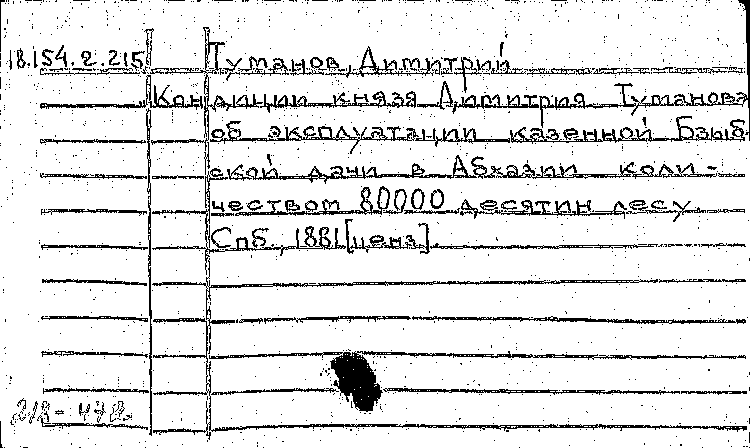 18.154.2.215 Туманов, Димитрий
Кондиции князя Димитрия Туманова
об эксплуатации казенной Бзыб-
ской дачи в Абхазии коли-
чеством 80000 десятин лесу.
Спб., 1881 [ценз].